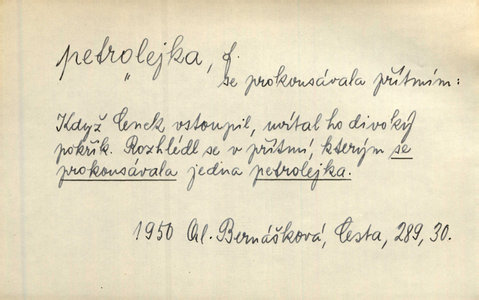 petrolejka, f.
se prokousávala přítmím:
Když Čenek vstoupil, uvítal ho divoký
pokřik. Rozhlédl se v přítmí, kterým se
prokousávala jedna petrolejka.
1950 Al. Bernášková, Cesta, 289, 30.